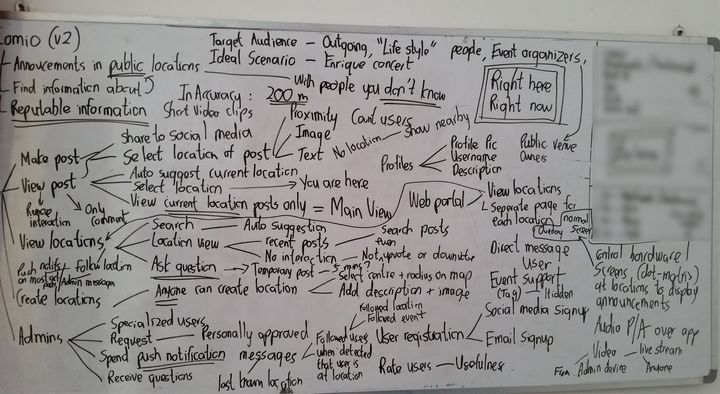 Lomio (v2)
Target Audience - Outgoing, "Life style" people, Event organizers,
Ideal Scenario - Enrique concert
- Annoucements in public locations
With people you don't know
- Find information about
Right here
Right now
In Accuracy: 200 m
- Reputable information
Short Video clips
Proximity
Image
Text
Count users
No location - Show nearby
Share to social media
Make post
Select location of post
Profiles
Profile Pic
Username
Description
Public venue
Owners
Auto suggest current location
View post
Select location → You are here
View current location posts only = Main View
Web portal
View locations
Seperate page for
each location
normal
Screen
Overlay
interaction
Only
comment
View locations
Search - Auto suggestion
Location view
recent posts
No interaction
Search posts
Not upvote or downvote
Direct message
User
Push notifs
Follow location
Admin messages
Ask question → Temporary post
5 mins?
Select centre + radius on map
Event Support
(Tag) Hidden
Create locations
Anyone can create location
Add description + image
Control hardware/
Screens (dot-matrix)
at locations to display
announcements
Social media Signup
Email Signup
User registration
Admins
Specialized users
Request - Personally approved
Spend push notification messages
Receive questions
last known location
Followed location
Followed event
Followed users
when detected
that user is
at location
Rate users - Usefulness
Audio P/A over app
Video - live stream
From Admin device
Anyone